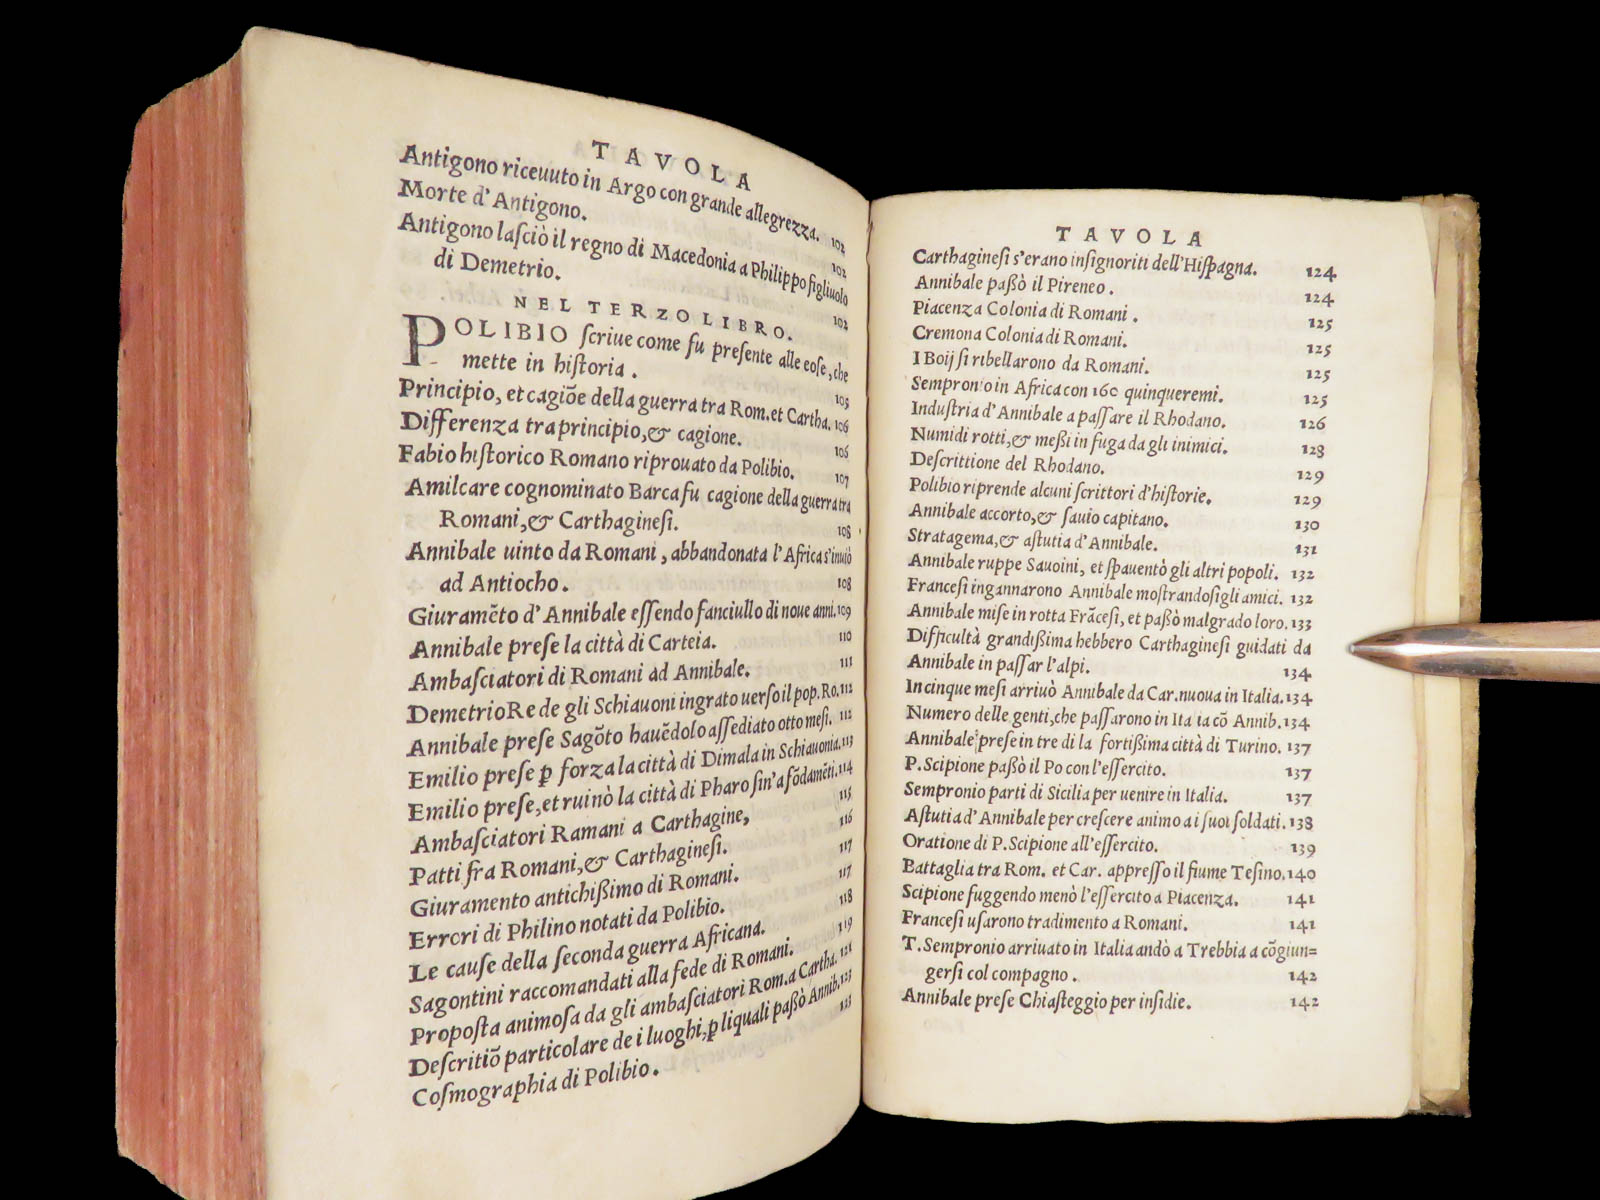 TAVOLA
Antigono riceuuto in Argo con grande allegrezza. 102
Morte d'Antigono. 102
Antigono laſciò il regno di Macedonia a Philippo figliuolo
di Demetrio. 102
NEL TERZO LIBRO.
POLIBIO ſcriue come fu preſente alle coſe, che
mette in hiſtoria. 105
Principio, et cagiōe della guerra tra Rom. et Cartha. 106
Differenza tra principio, & cagione. 106
Fabio hiſtorico Romano riprouato da Polibio. 107
Amilcare cognominato Barca fu cagione della guerra tra
Romani, & Carthagineſi. 108
Annibale uinto da Romani, abbandonata l'Africa s'inuiò
ad Antiocho. 108
Giuramēto d'Annibale eſſendo fanciullo di noue anni. 109
Annibale preſe la città di Carteia. 110
Ambaſciatori di Romani ad Annibale. 111
Demetrio Re de gli Schiauoni ingrato uerſo il pop. Ro. 112
Annibale preſe Sagōto hauēdolo aſſediato otto meſi. 112
Emilio preſe ꝑ forza la città di Dimala in Schiauonia. 113
Emilio preſe, et ruinò la città di Pharo ſin'a fōdamēti. 114
Ambaſciatori Ramani a Carthagine, 115
Patti fra Romani, & Carthagineſi. 116
Giuramento antichißimo di Romani. 117
Errori di Philino notati da Polibio. 117
Le cauſe della ſeconda guerra Africana. 118
Sagontini raccomandati alla fede di Romani. 119
Propoſta animoſa da gli ambaſciatori Rom. a Cartha. 121
Deſcritiō particolare de i luoghi, ꝑ liquali paßò Annib. 123
Coſmographia di Polibio. 123
TAVOLA
Carthagineſi s'erano inſignoriti dell'Hiſpagna. 124
Annibale paßò il Pireneo. 124
Piacenza Colonia di Romani. 125
Cremona Colonia di Romani. 125
I Boij ſi ribellarono da Romani. 125
Sempronio in Africa con 160 quinqueremi. 125
Induſtria d'Annibale a paſſare il Rhodano. 126
Numidi rotti, & meßi in fuga da gli inimici. 128
Deſcrittione del Rhodano. 129
Polibio riprende alcuni ſcrittori d'hiſtorie. 129
Annibale accorto, & ſauio capitano. 130
Stratagema, & aſtutia d'Annibale. 131
Annibale ruppe Sauoini, et ſpauentò gli altri popoli. 132
Franceſi ingannarono Annibale moſtrandoſigli amici. 132
Annibale miſe in rotta Frāceſi, et paßò malgrado loro. 133
Difficultà grandißima hebbero Carthagineſi guidati da
Annibale in paſſar l'alpi. 134
In cinque meſi arriuò Annibale da Car. nuoua in Italia. 134
Numero delle genti, che paſſarono in Ita ia cō Annib. 134
Annibale preſe in tre dì la fortißima città di Turino. 137
P. Scipione paßò il Po con l'eſſercito. 137
Sempronio partì di Sicilia per uenire in Italia. 137
Aſtutia d'Annibale per creſcere animo a i ſuoi ſoldati. 138
Oratione di P. Scipione all'eſſercito. 139
Battaglia tra Rom. et Car. appreſſo il fiume Teſino. 140
Scipione fuggendo menò l'eſſercito a Piacenza. 141
Franceſi uſarono tradimento a Romani. 141
T. Sempronio arriuato in Italia andò a Trebbia a cōgiun=
gerſi col compagno. 142
Annibale preſe Chiaſteggio per inſidie. 142